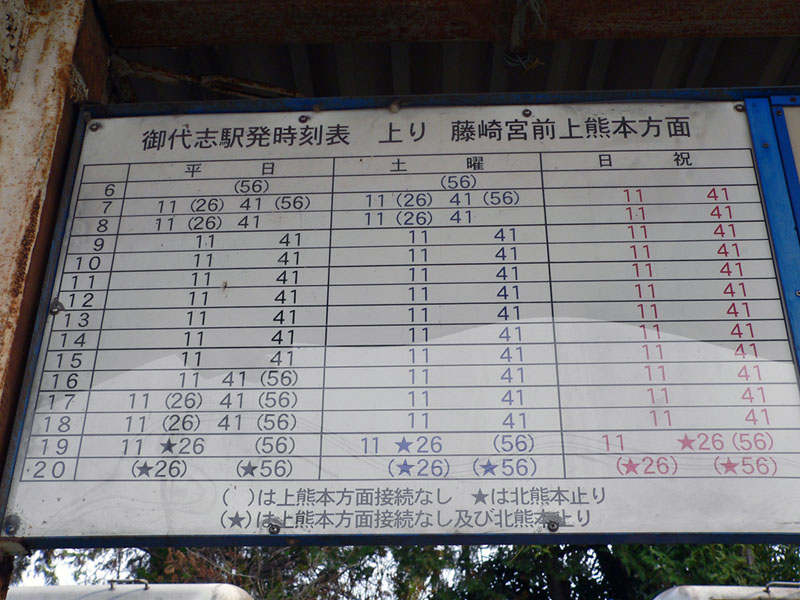 御代志駅発時刻表 上り 藤崎宮前上熊本方面
平日 土曜 日祝
6 (56) (56)
7 11 (26) 41 (56) 11 (26) 41 (56) 11 41
8 11 (26) 41 11 (26) 41 11 41
9 11 41 11 41 11 41
10 11 41 11 41 11 41
11 11 41 11 41 11 41
12 11 41 11 41 11 41
13 11 41 11 41 11 41
14 11 41 11 41 11 41
15 11 41 11 41 11 41
16 11 41 (56) 11 41 11 41
17 11 (26) 41 (56) 11 41 11 41
18 11 (26) 41 (56) 11 41 11 41
19 11 ★26 (56) 11 ★26 (56) 11 ★26 (56)
20 (★26) (★56) (★26) (★56) (★26) (★56)
( )は上熊本方面接続なし ★は北熊本止り
(★)は上熊本方面接続なし及び北熊本止り